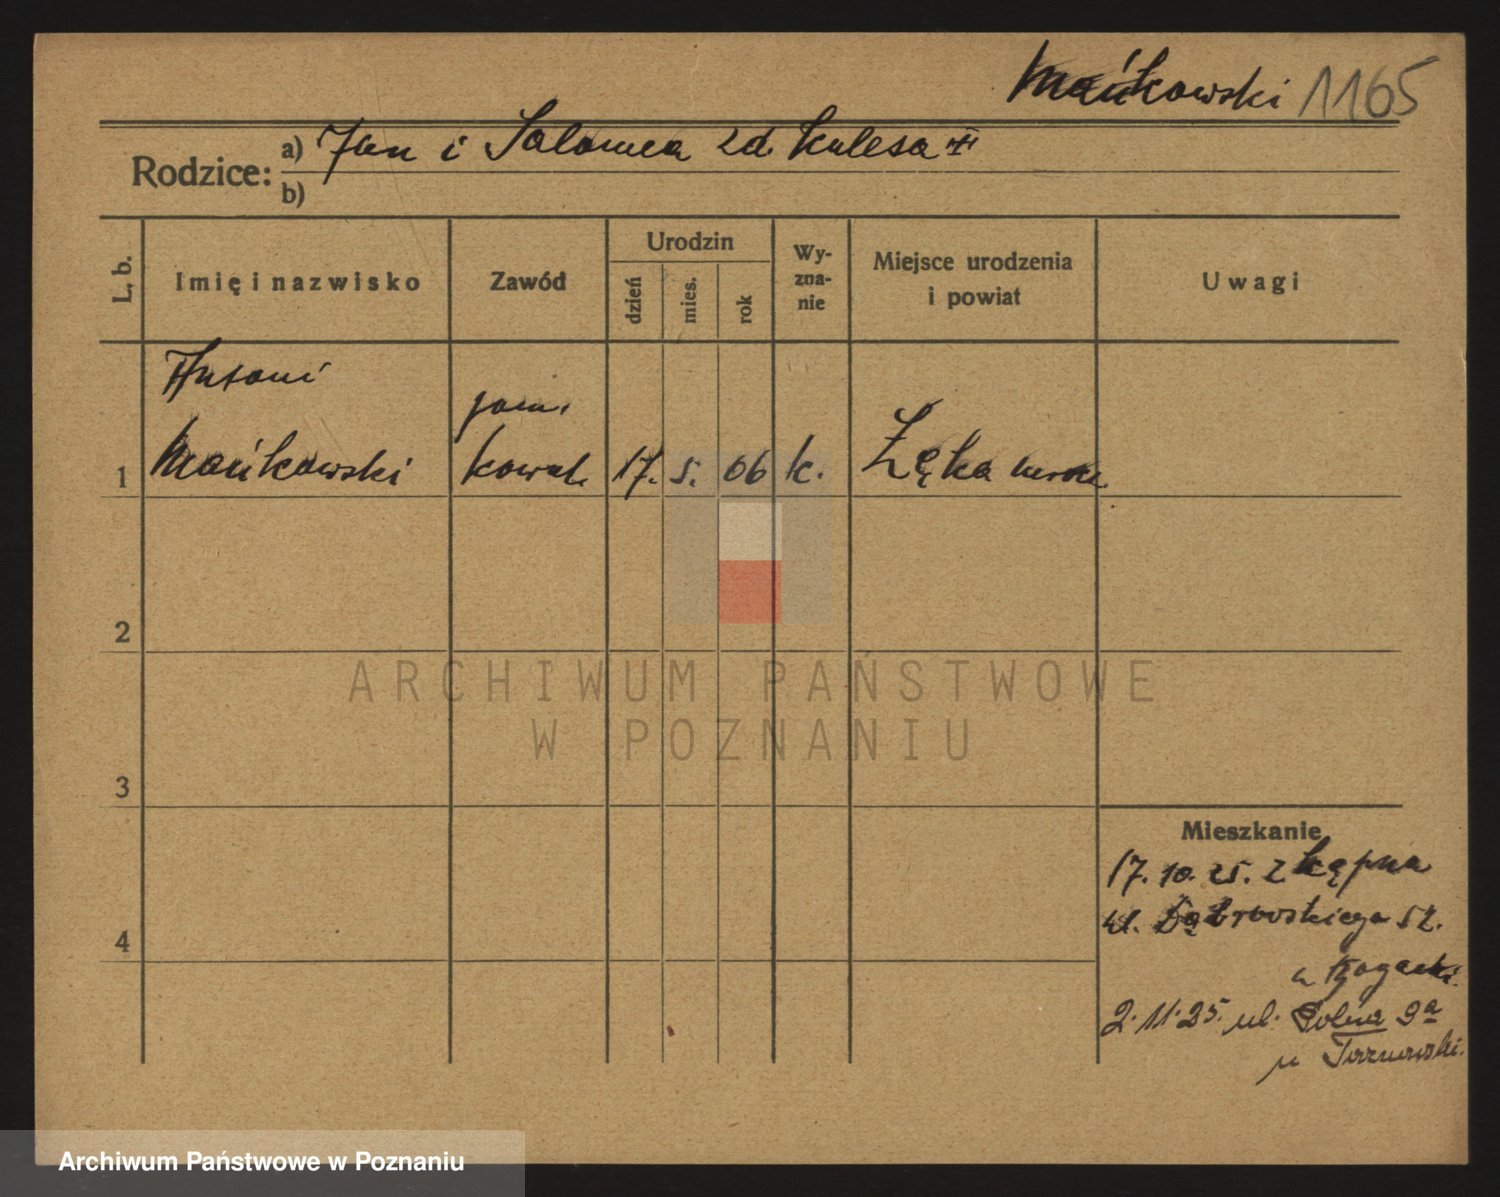 Mańkowski 1165
Rodzice: a) Jan i Salomea zd. Kulesa
b)
L. b.
Imię i nazwisko
Zawód
Urodzin
dzień
mies.
rok
Wy-
zna-
nie
Miejsce urodzenia
i powiat
Uwagi
Antoni
Mańkowski
pom.
kowal.
17. 5. 06
k.
Łęka
1
2
3
4
Mieszkanie
17. 10. 25. z Kępna
ul. Dąbrowskiego 52.
u
2. 11. 25. ul. Polna 9a
u Tarnowski.
ARCHIWUM PAŃSTWOWE
W POZNANIU
Archiwum Państwowe w Poznaniu